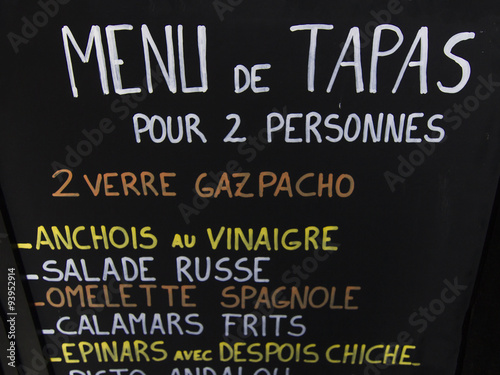 MENU DE TAPAS
POUR 2 PERSONNES
2 VERRE GAZPACHO
-ANCHOIS AU VINAIGRE
-SALADE RUSSE
-OMELETTE SPAGNOLE
-CALAMARS FRITS
-EPINARS AVEC DESPOIS CHICHE
PISTO ANDALOU
Adobe Stock | #93952914